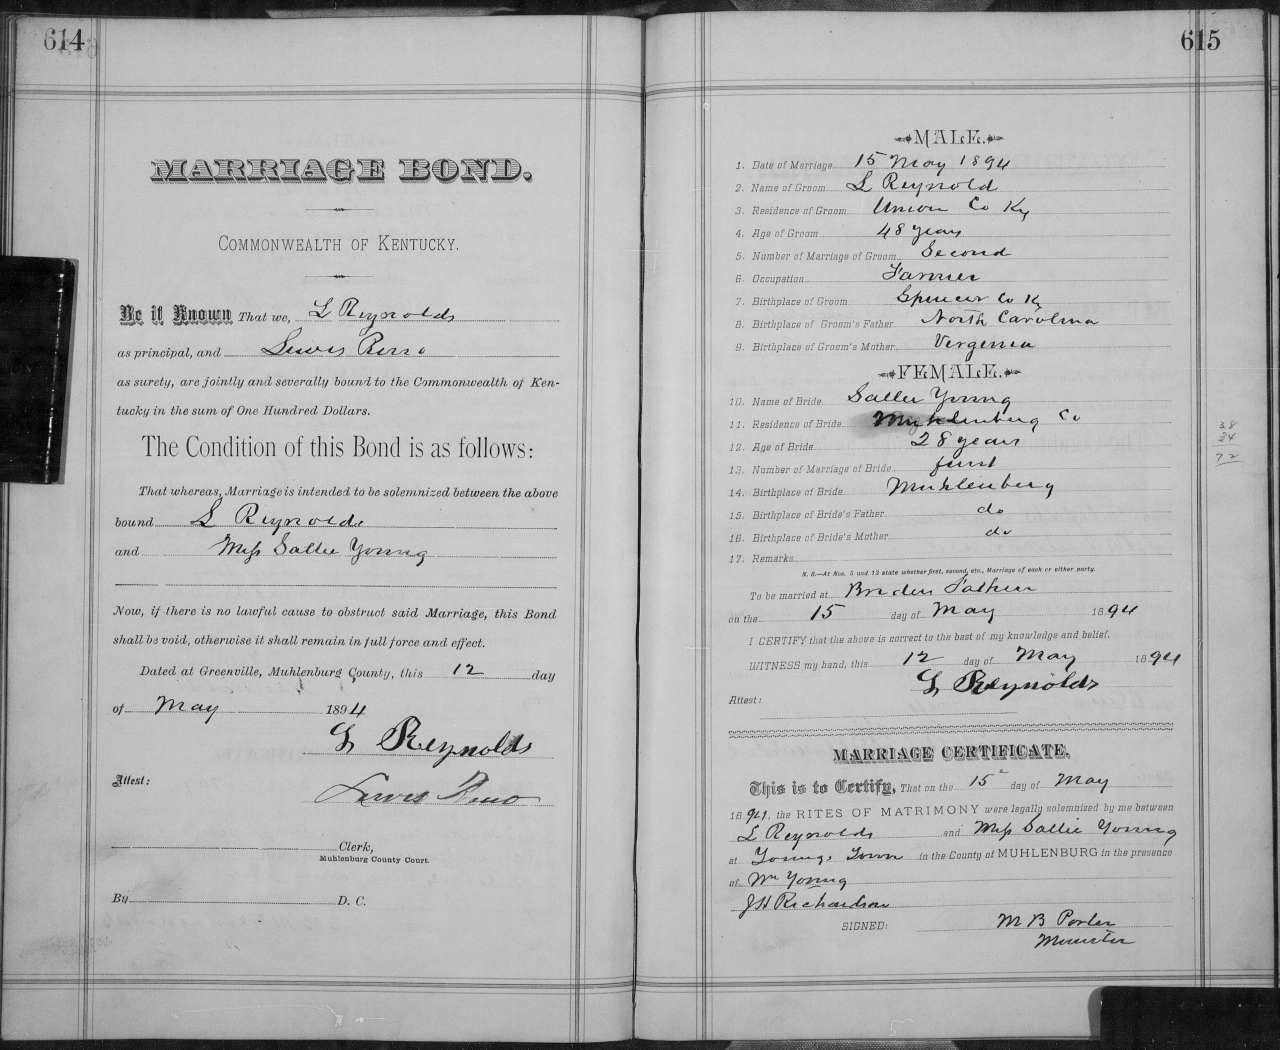 614
MARRIAGE BOND.
COMMONWEALTH OF KENTUCKY.
Be it Known That we, L Reynolds
as principal, and Lewis Reno
as surety, are jointly and severally bound to the Commonwealth of Ken-
tucky in the sum of One Hundred Dollars.
The Condition of this Bond is as follows:
That whereas, Marriage is intended to be solemnized between the above
bound L Reynolds
and Miss Sallie Young
Now, if there is no lawful cause to obstruct said Marriage, this Bond
shall be void, otherwise it shall remain in full force and effect.
Dated at Greenville, Muhlenburg County, this 12 day
of May 1894
L Reynolds
Attest:
Lewis Reno
Clerk,
Muhlenburg County Court.
By D. C.
615
MALE.
1. Date of Marriage 15 May 1894
2. Name of Groom L Reynold
3. Residence of Groom Union Co Ky
4. Age of Groom 48 years
5. Number of Marriage of Groom Second
6. Occupation Farmer
7. Birthplace of Groom Spencer Co K
8. Birthplace of Groom's Father North Carolina
9. Birthplace of Groom's Mother Vergenia
FEMALE.
10. Name of Bride Sallie Young
11. Residence of Bride Muhlenburg Co
12. Age of Bride 28 years
13. Number of Marriage of Bride first
14. Birthplace of Bride Muhlenberg
15. Birthplace of Bride's Father do
16. Birthplace of Bride's Mother do
17. Remarks
N. B.—At Nos. 5 and 13 state whether first, second, etc., Marriage of each or either party.
To be married at Brides Father
on the 15 day of May 1894
I CERTIFY that the above is correct to the best of my knowledge and belief.
WITNESS my hand, this 12 day of May 1894
L Reynolds
Attest:
38
34
72
MARRIAGE CERTIFICATE.
This is to Certify, That on the 15 day of May
1894, the RITES OF MATRIMONY were legally solemnized by me between
L Reynolds and Miss Sallie Young
at Youngs Town in the County of MUHLENBURG in the presence
of Wm Young
J H Richardson
SIGNED: M B Porter
Minister